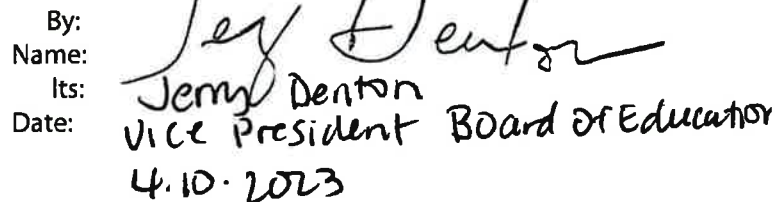 By: Jerry Denton
Name: Jerry Denton
Its: Vice President Board of Education
Date: 4.10.2023